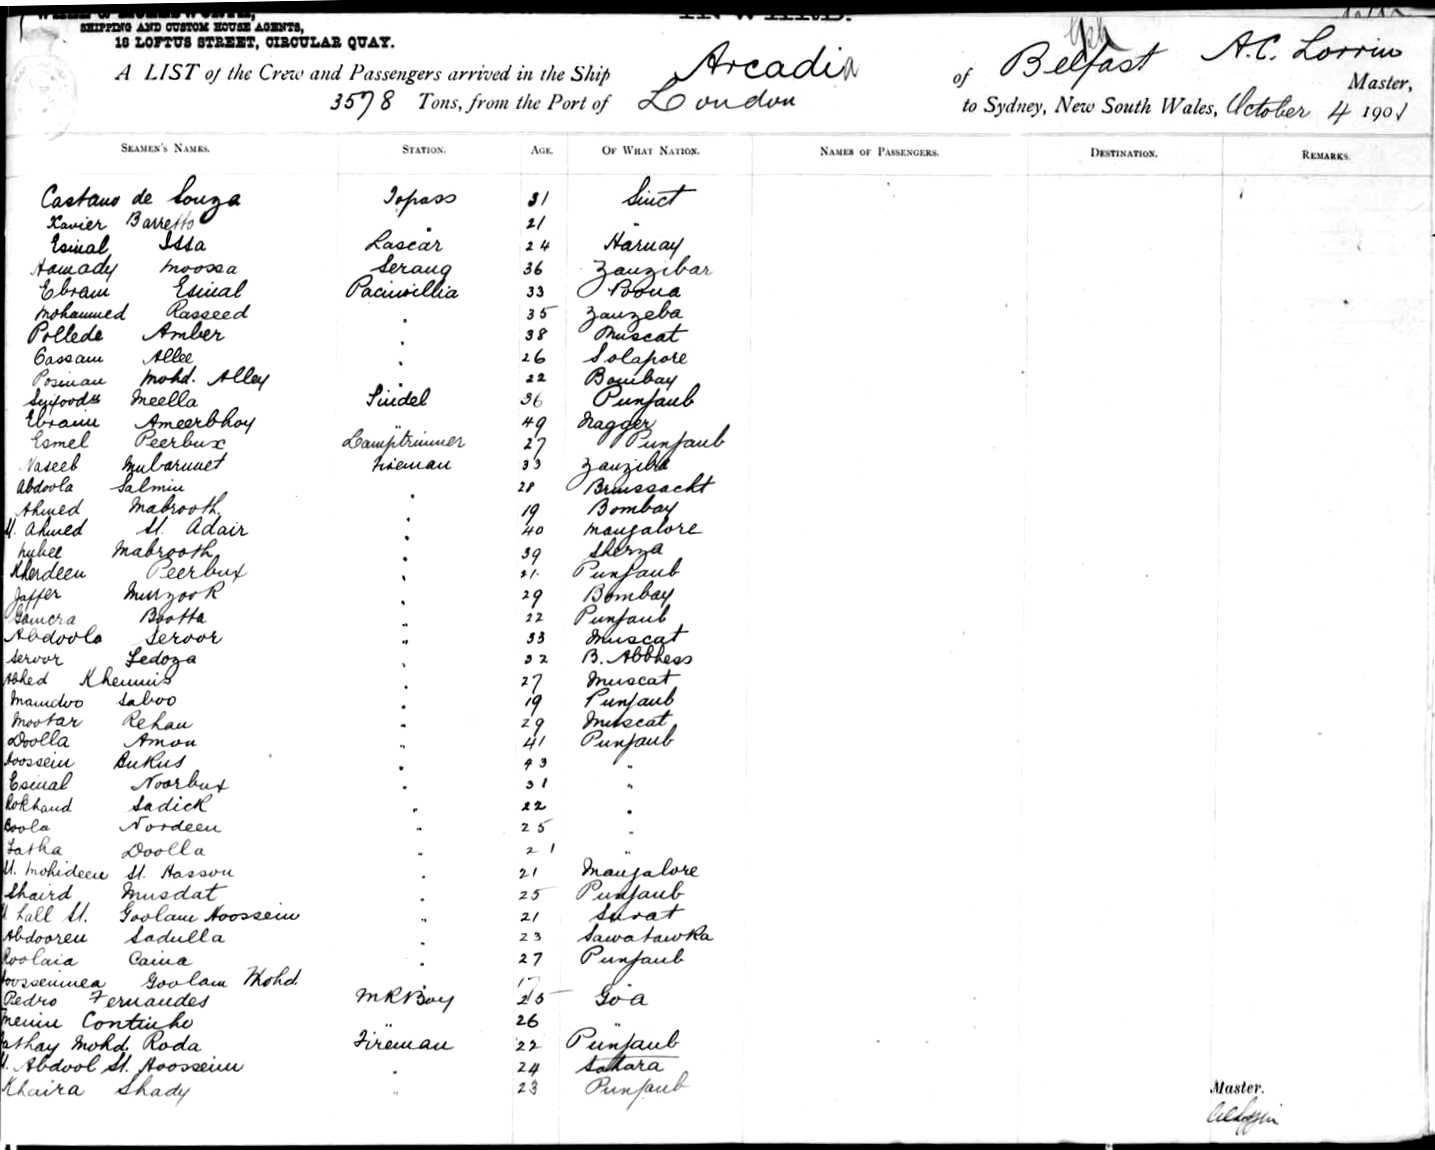 SHIPPING AND CUSTOM HOUSE AGENTS,
16 LOFTUS STREET, CIRCULAR QUAY.
A LIST of the Crew and Passengers arrived in the Ship Arcadia of Belfast A.C. Lorrin Master,
3578 Tons, from the Port of London to Sydney, New South Wales, October 4 1901
SEAMEN'S NAMES. STATION. AGE. OF WHAT NATION. NAMES OF PASSENGERS. DESTINATION. REMARKS.
Castano de Souza Topass 31
Xavier Barretto " 21 "
Esmal Issa Lascar 24 Harnay
Hamady Moossa Serang 36 Zanzibar
Ebram Esmal 33 Poona
Mohammed Rasseed " 35 Zanzeba
Pollede Amber " 38 Muscat
Cassam Allee " 26 Solapore
Posman Mohd. Alley " 22 Bombay
Meella Tindel 36 Punjaub
Ebraim Ameerbhoy " 49 Nagger
Esmel Peerbux Lamptrimmer 27 Punjaub
Naseeb Mubarucet Fireman 33 Zanziba
Abdoola Salmin " 28
Ahmed Mabrooth " 19 Bombay
St. Ahmed St. Adair " 40 Mangalore
Mabrooth " 39
Kherdeen Peerbux " 21 Punjaub
Jaffer Murzook " 29 Bombay
Gamera Bootta " 22 Punjaub
Abdoola Seroor " 33 Muscat
Seroor Fedoza " 32 B. Abbhess
Abhed Khemmis " 27 Muscat
Mamdoo Saboo " 19 Punjaub
Mootar Rehan " 29 Muscat
Doolla Amon " 41 Punjaub
Hoossein Bukus " 43 "
Esmal Noorbux " 31 "
Rokhand Sadick " 22 "
Boola Nordeen " 25 "
Fatha Doolla " 21 "
St. Mohideen St. Hasson " 21 Mangalore
Shaird Musdat " 25 Punjaub
Lall St. Goolam Hoossein " 21 Surat
Abdooren Sadulla " 23 Sawatawka
Roolaia Caina " 27 Punjaub
Goolam Mohd. " 17
Pedro Fernandes MR Boy 25 Goa
Continho " 26 "
Mohd. Roda Fireman 22 Punjaub
St. Abdool St. Hoossein " 24 Satara
Khaira Shady " 23 Punjaub
Master.